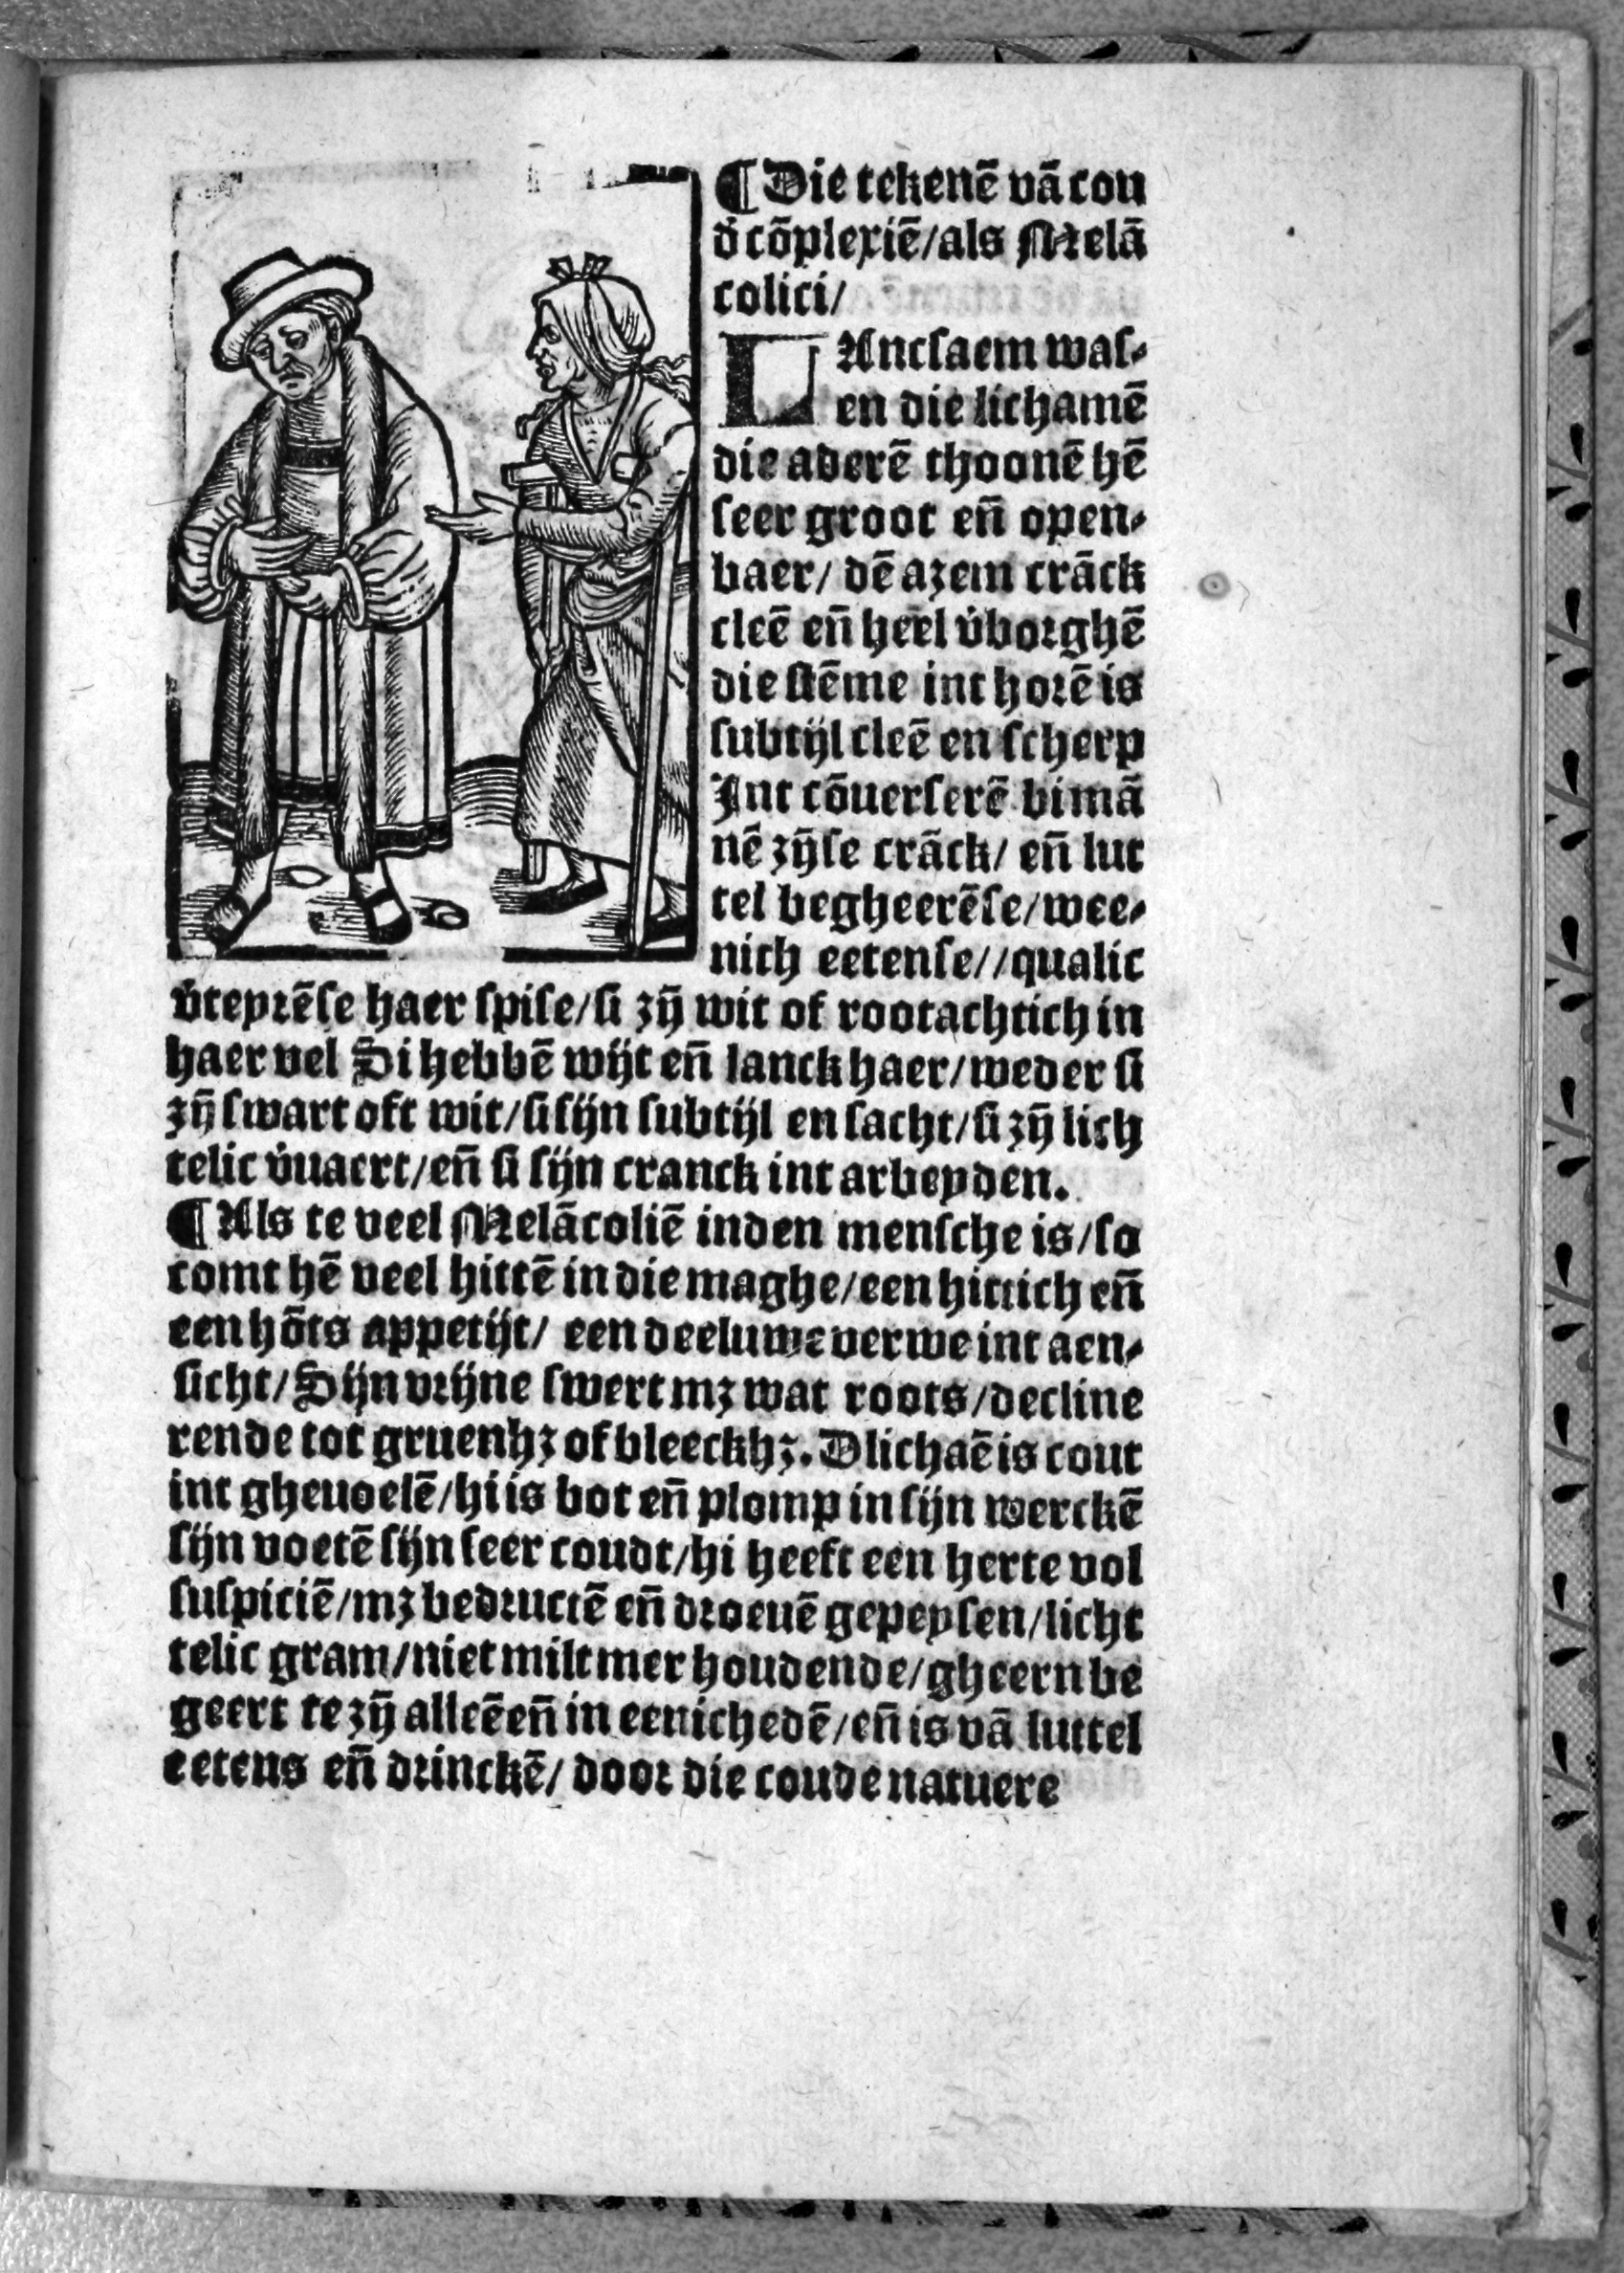 ¶ Die tekenē vā cou
d̕ cōplexiē/als Melā
colici/
LAncsaem was⸗
en die lichamē
die aderē thoonē hē
seer groot eñ open⸗
baer/ dē azem crāck
cleē eñ heel v̕borghē
die stēme int horē is
subtijl cleē en scherp
Int cōuerserē bi mā
nē zȳse crāck/ eñ lut
tel begheerēse/wee⸗
nich eetense//qualic
v̕teprēse haer spise/si zȳ wit of rootachtich in
haer vel Si hebbē wijt eñ lanck haer/weder si
zȳ swart oft wit/si sijn subtijl en sacht/si zȳ lich
telic v̕uaert/eñ si sijn cranck int arbeyden.
¶ Als te veel Melācoliē inden mensche is/so
comt hē veel hittē in die maghe/een hittich eñ
een hōts appetijt/ een deeluwe verwe int aen⸗
sicht/Sijn vrijne swert mꝫ wat roots/decline
rende tot gruenhꝫ of bleeckhꝫ. Dlichaē is cout
int gheuoelē/hi is bot eñ plomp in sijn werckē
sijn voetē sijn seer coudt/hi heeft een herte vol
suspiciē/mꝫ bedructē eñ droeuē gepeysen/licht
telic gram/niet milt mer houdende/gheern be
geert te zȳ alleē eñ in eenichedē/eñ is vā luttel
eetens eñ drinckē/ door die coude natuere